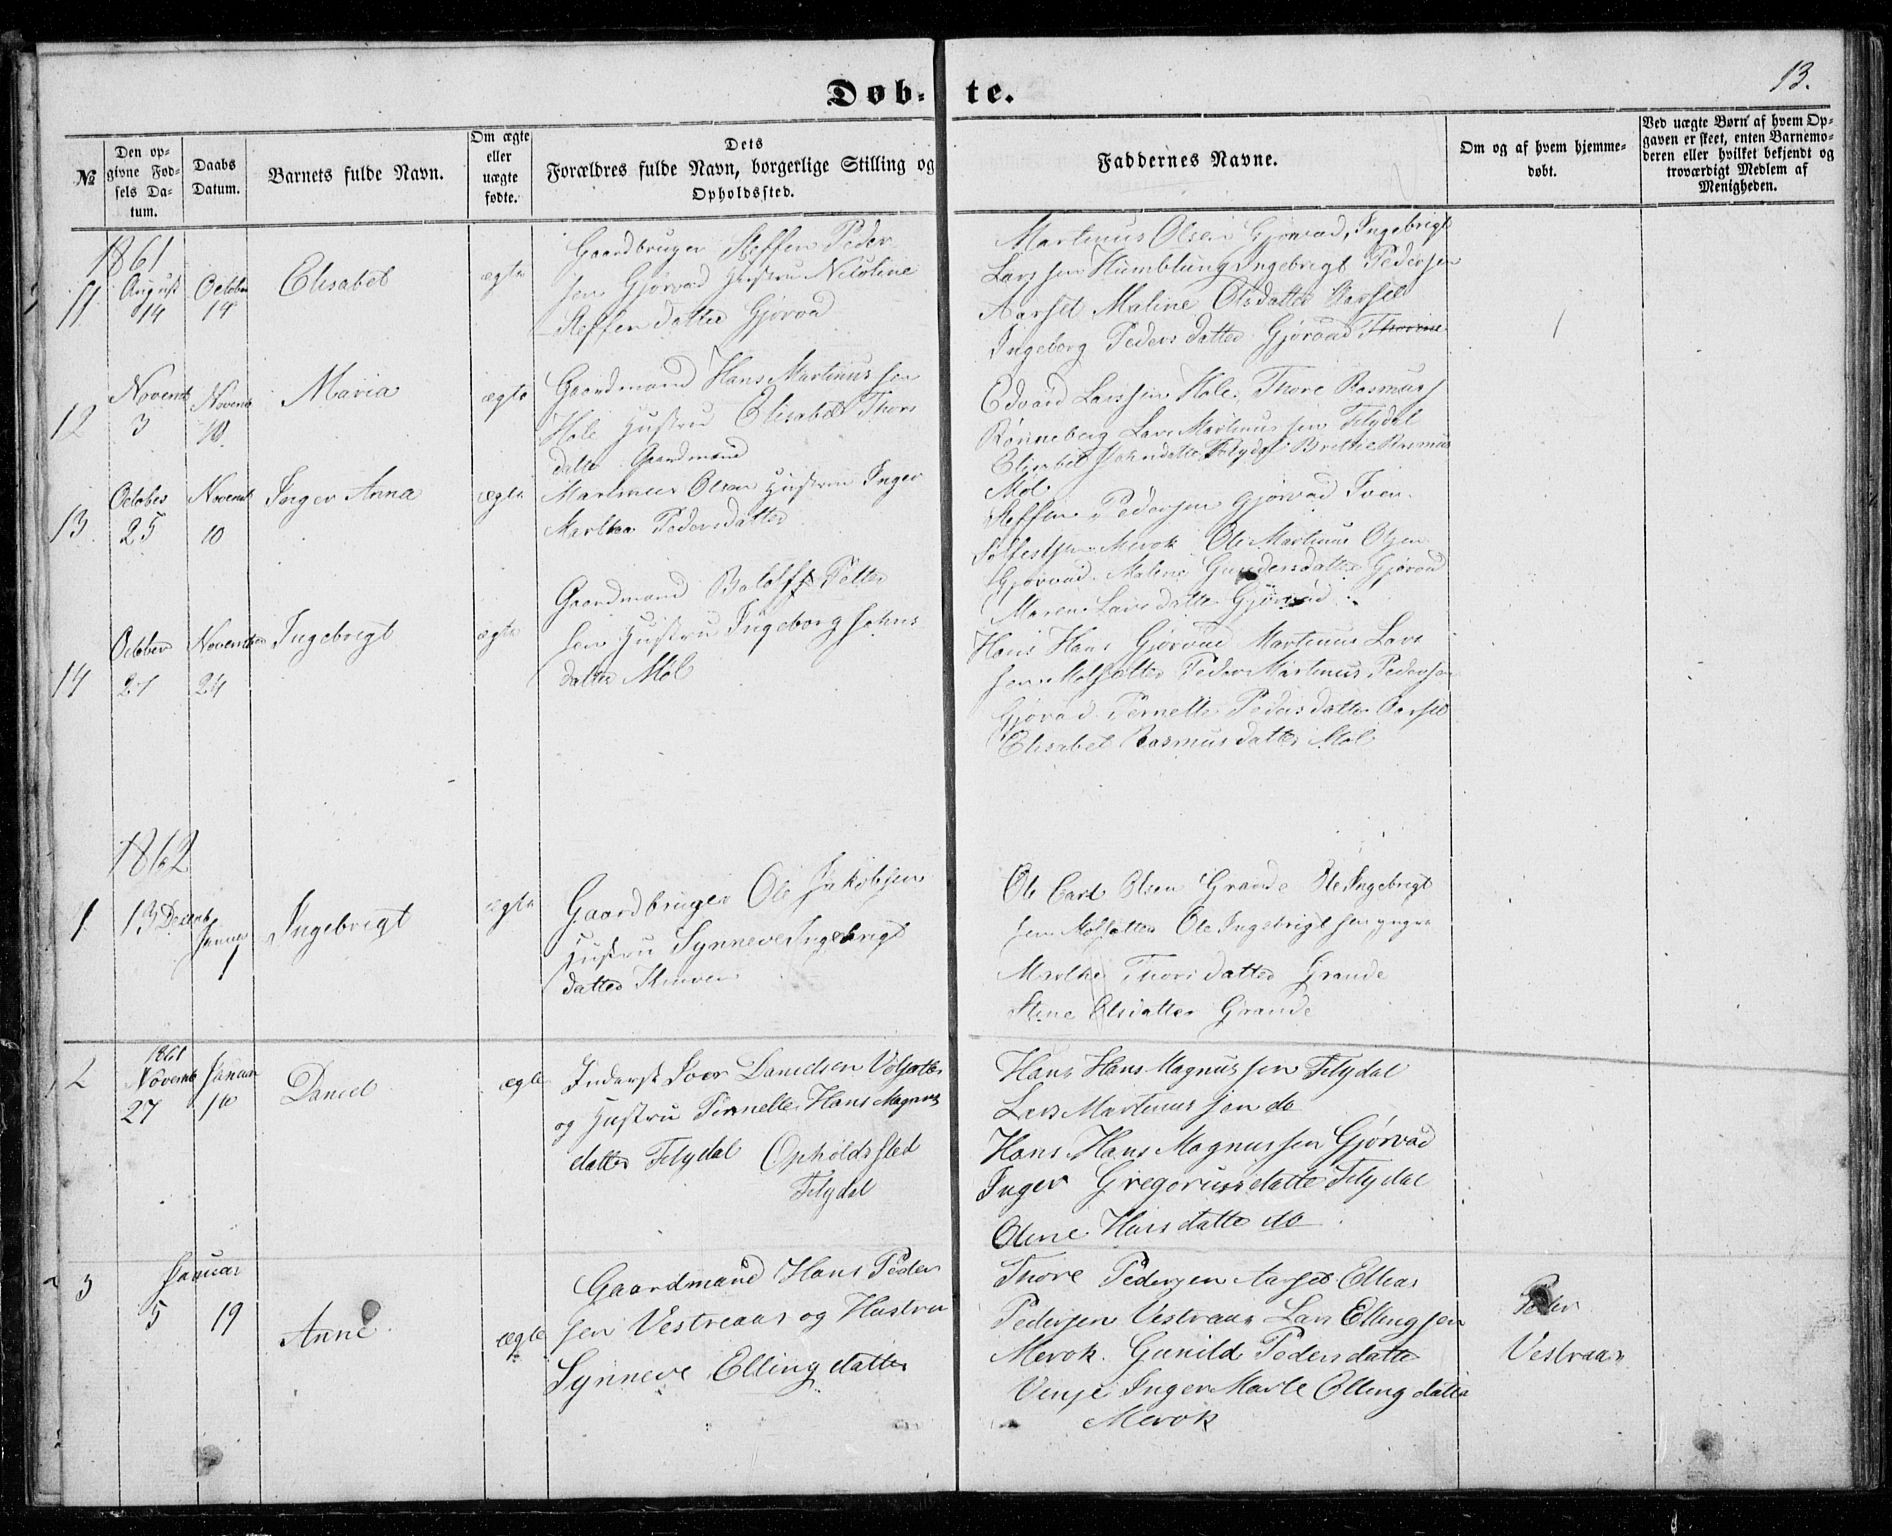 13.
Døb-te.
№
Den op-
givne Fød-
sels Da-
tum.
Daabs
Datum.
Barnets fulde Navn.
Om ægte
eller
uægte
fødte.
Dets
Forældres fulde Navn, borgerlige Stilling og
Opholdssted.
Faddernes Navne.
Om og af hvem hjemme-
døbt.
Ved uægte Børn af hvem Op-
gaven er skeet, enten Barnemo-
deren eller hvilket bekjendt og
troværdigt Medlem af
Menigheden.
1861
11
August
14
October
14
Elisabet
ægte
Gaardbruger Steffen Peder
sen Gjørvad Hustru Nicoline
Steffensdatter Gjørvad
Martinus Olsen Gjørvad, Ingebrigt
Larssen Humblung Ingebrigt Pedersen
Aarset Maline Olsdatter Aarset
Ingeborg Pedersdatter Gjørvad
12
Novemb
3
Novemb
10
Maria
ægte
Gaardmand Hans Martinussen
Hole Hustru Elisabet Thors
datter
Edvard Larssen Hole, Thore Rasmus
Rønneberg Lars Martinussen Flydal
Elisabet Johnsdatter Flydal Brithe Rasmus
Mol
13
October
25
Novemb
10
Inger Anna
ægte
Gaardmand
Martinus Olsen Hustru Inger
Marthe Pedersdatter
Steffen Pedersen Gjørvad Iver
Merok Ole Martinus Olsen
Gjørvad. Maline Gundersdatter Gjørvad
Maren Larsdatter Gjørvad
14
October
21
November
24
Ingebrigt
ægte
Gaardmand Petter
sen Hustru Ingeborg Johns
datter Mol
Hans Hans Gjørvad Martinus Lars
sen Molsætter Peder Martinus Pedersen
Gjørvad Pernelle Pedersdatter Aarset
Elisabet Rasmusdatter Mol
1862
1
13 Decemb
Januar
1
Ingebrigt
ægte
Gaardbruger Ole Jakobsen
Hustru Synneve Ingebrigt
datter
Ole Carl Olsen Grande Ole Ingebrigt
sen Molsætter Ole Ingebrigtsen yngre
Marthe Thorsdatter Grande
Stine Olsdatter Grande
2
1861
Novemb
27
Januar
Daniel
ægte
Inderst Iver Danielsen
og Hustru Pernelle Hans Magnus
datter Flydal Opholdssted
Flydal
Hans Hans Magnussen Flydal
Lars Martinussen do
Hans Hans Magnussen Gjørvad
Inger Gregoriusdatter Flydal
Oline Hansdatter do
3
Januar
5
19
Anne
ægte
Gaardmand Hans Peder
sen Vestreaas og Hustru
Synneve Ellingsdatter
Thore Pedersen Aarset Elias
Pedersen Vestraas Lars Ellingsen
Merok. Gunild Pedersdatter
Vinje Inger Marte Ellingsdatter
Merok
Peder
Vestraas